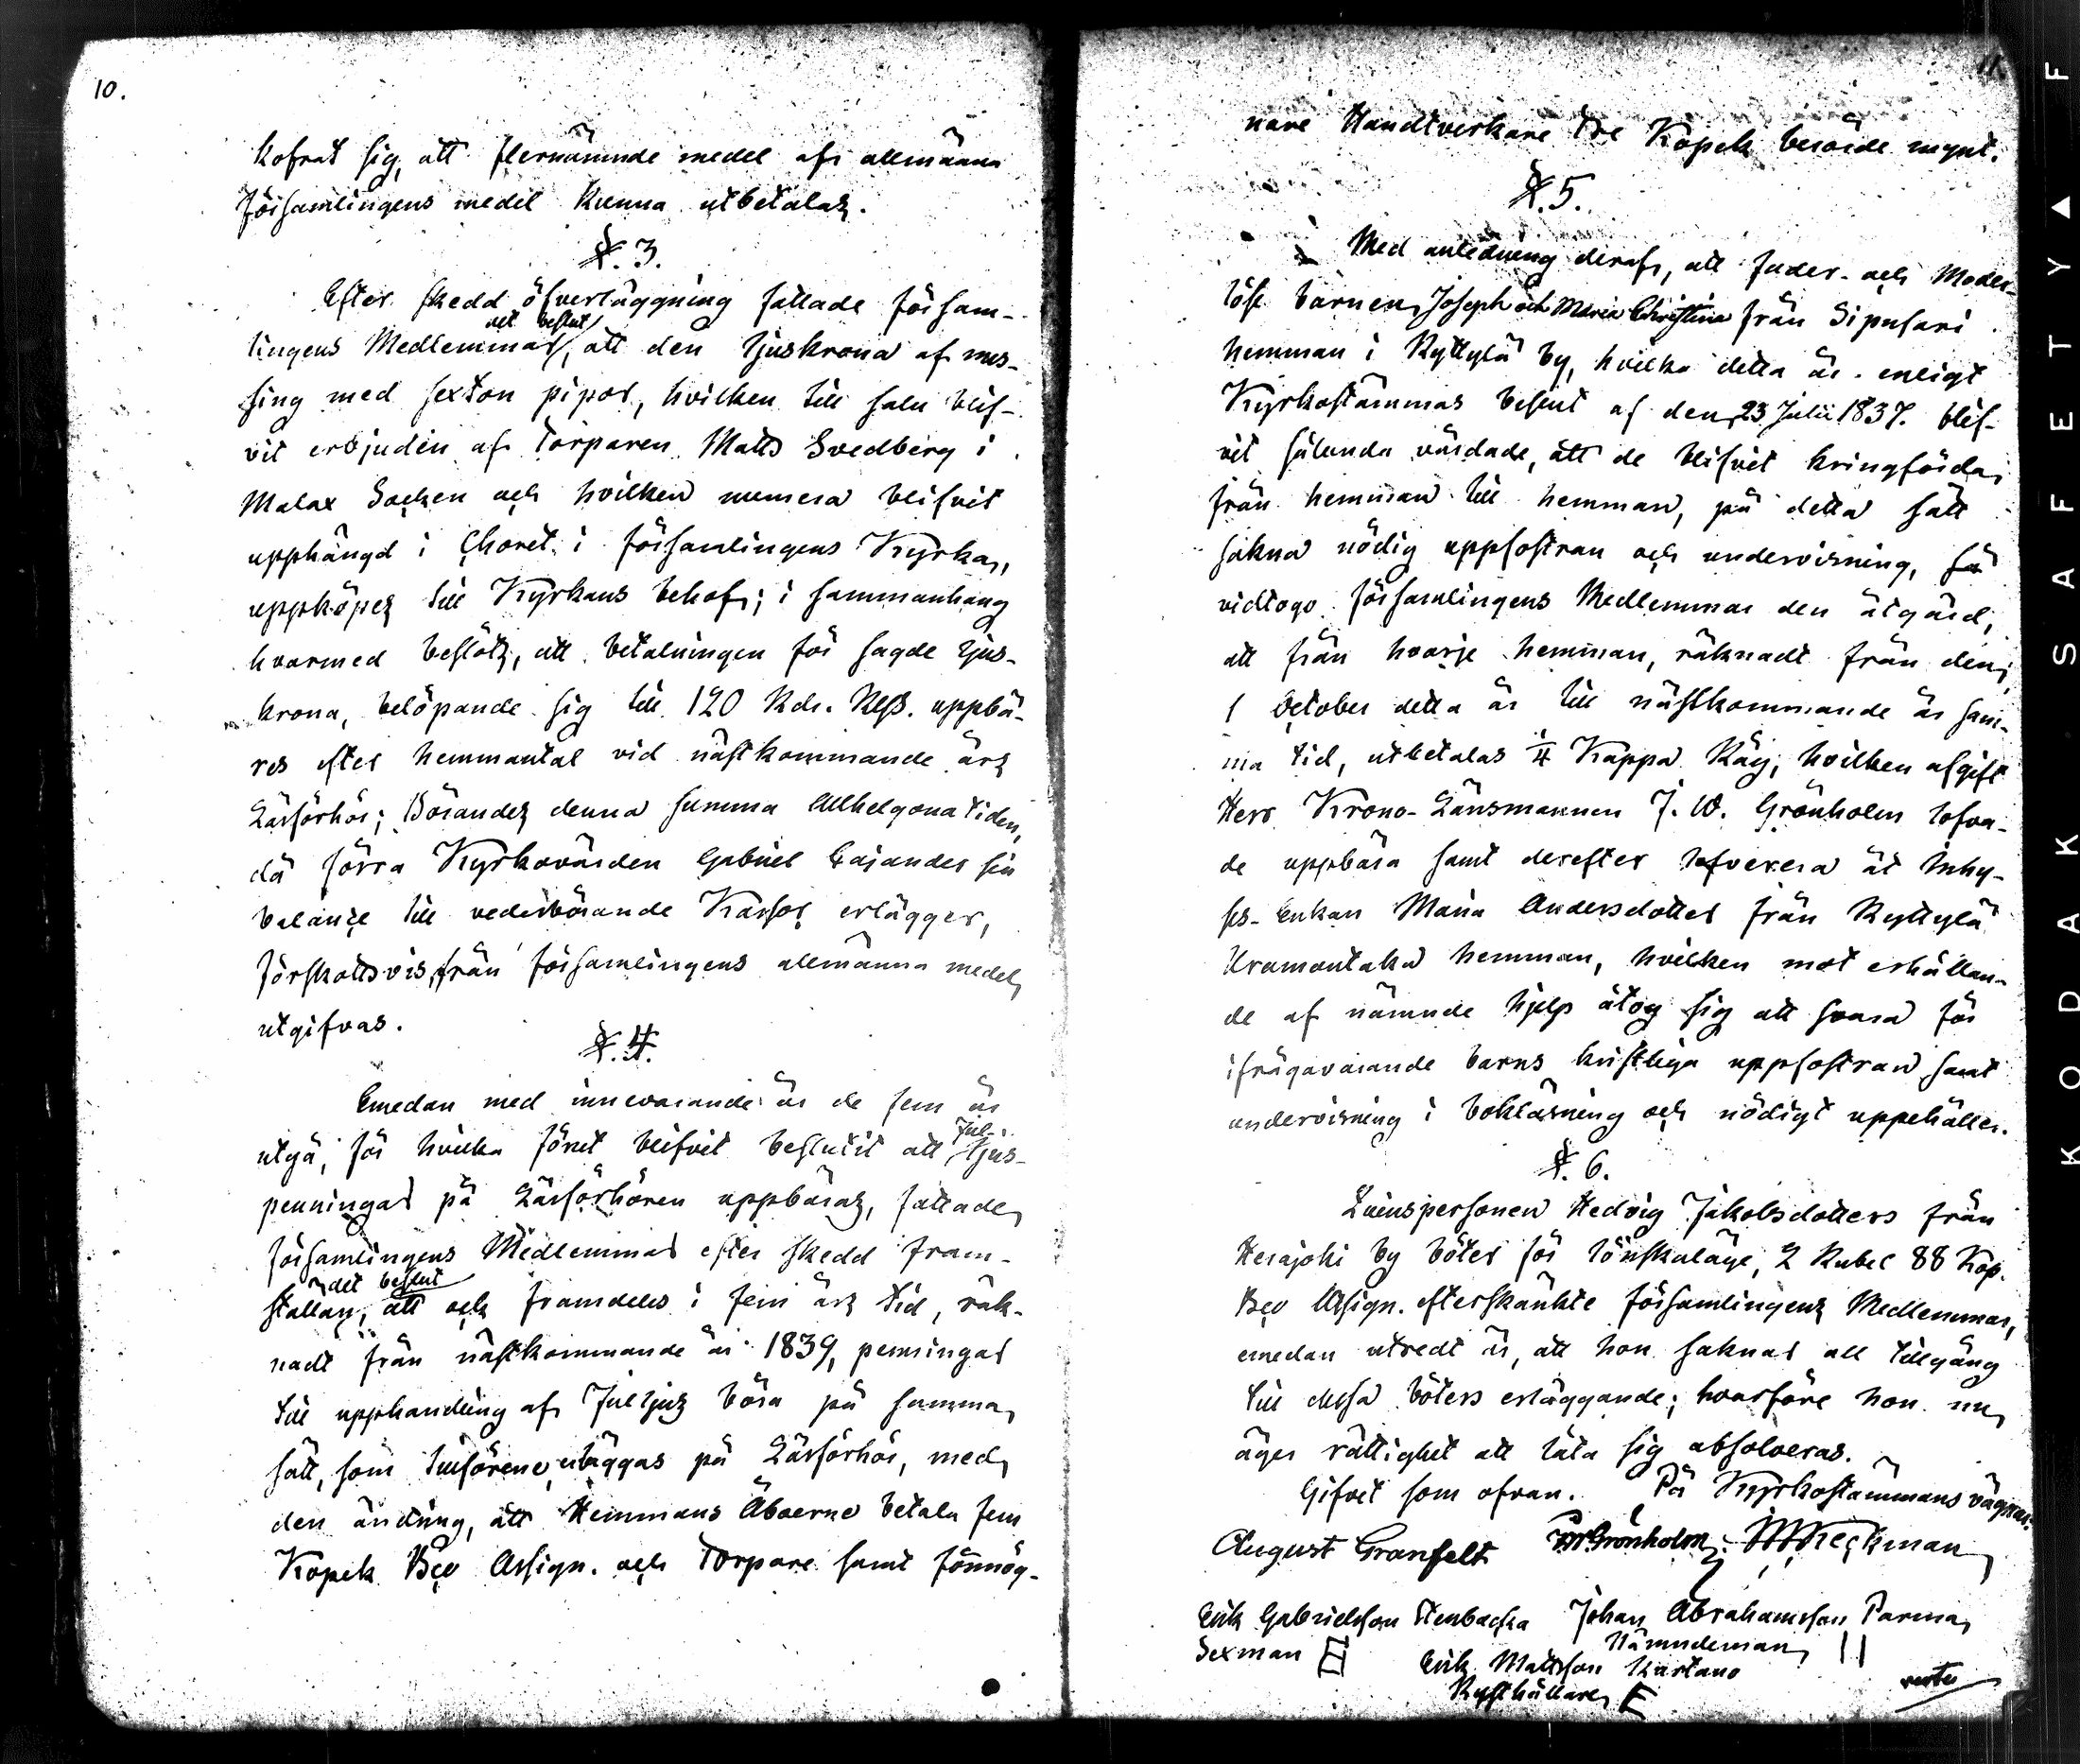 10.
kofrat sig, att flernämnde medel af allmänna
församlingens medel kunna utbetalas.
§. 3.
Efter skedd öfverläggning fattade försam-
lingens Medlemmar det beslut, att den ljuskrona af mes-
sing med sexton pipor, hvilken till salu blif-
vit erbjuden af Torparen Matts Svedberg i
Malax Socken och hvilken numera blifvit
upphängd i Choret i församlingens Kyrka,
uppköpes till Kyrkans behof; i sammanhang
hvarmed beslöts, att betalningen för sagde ljus-
krona, belöpande sig till 120 Rdr. Rgs. uppbä-
res efter hemmantal vid nästkommande års
Läsförhör; Börandes denna summa Allhelgona tiden,
då förra Kyrkovärden Gabriel Cajander sin
balance till vederbörande Kassor erlägger,
förskottsvis, från församlingens allmänna medel,
utgifvas.
§. 4.
Emedan med innevarande år de fem år
utgå, för hvilka förut blifvit beslutit att Jul-ljus-
penningar på Läsförhören uppbäras, fattade
församlingens Medlemmar efter skedd fram-
ställan, det beslut att och framdeles i fem års tid, räk-
nadt från nästkommande år 1839, penningar
till upphandling af Julljus böra på samma
sätt, som tillförene, erläggas på Läsförhör, med
den ändring, att Hemmans Åboerne betala fem
Kopek Bco Assign. och Torpare samt förmög-
11.
nare Handtverkare tre Kopek berörde mynt.
§. 5.
Med anledning deraf, att fader- och Moder-
löse barnen Joseph och Maria Christina från Sipusari
hemman i Kyttylä by, hvilka detta år enligt
Kyrkostämmas beslut af den 23 Julii 1837. blif-
vit sålunda vårdade, att de blifvit kringförda
från hemman till hemman, på detta sätt
sakna nödig uppfostran och undervisning, så
vidtogo församlingens Medlemmar den åtgärd,
att från hvarje hemman, räknadt från den
1 October detta år till nästkommande år sam-
ma tid, utbetalas 1/4 Kappa Råg, hvilken afgift
Herr Krono-Länsmannen J. W. Grönholm lofva-
de uppbära samt derefter lefverera åt Inhy-
ses-Enkan Maria Andersdotter från Kyttylä
Uramontaka hemman, hvilken mot erhållan-
de af nämnde hjelp åtog sig att svara för
ifrågavarande barns kristliga uppfostran samt
undervisning i bokläsning och nödigt uppehälle.
§. 6.
Qvinspersonen Hedvig Jakobsdotters från
Herajoki by böter för lönskaläge, 2 Rubel 88 Kop.
Bco Assign. efterskänkte församlingens Medlemmar,
emedan utredt är, att hon saknar all tillgång
till dessa böters erläggande; hvarföre hon nu
äger rättighet att låta sig absolveras.
Gifvet som ofvan. På Kyrkostämmans vägnar.
August Granfelt J W Grönholm
Erik Gabrielsson Stenbacka Johan Abrahamsson Parma
Sexman Nämndeman
Erik Mattsson Kustano
Rusthållare E
verte
KODAK SAFETY F